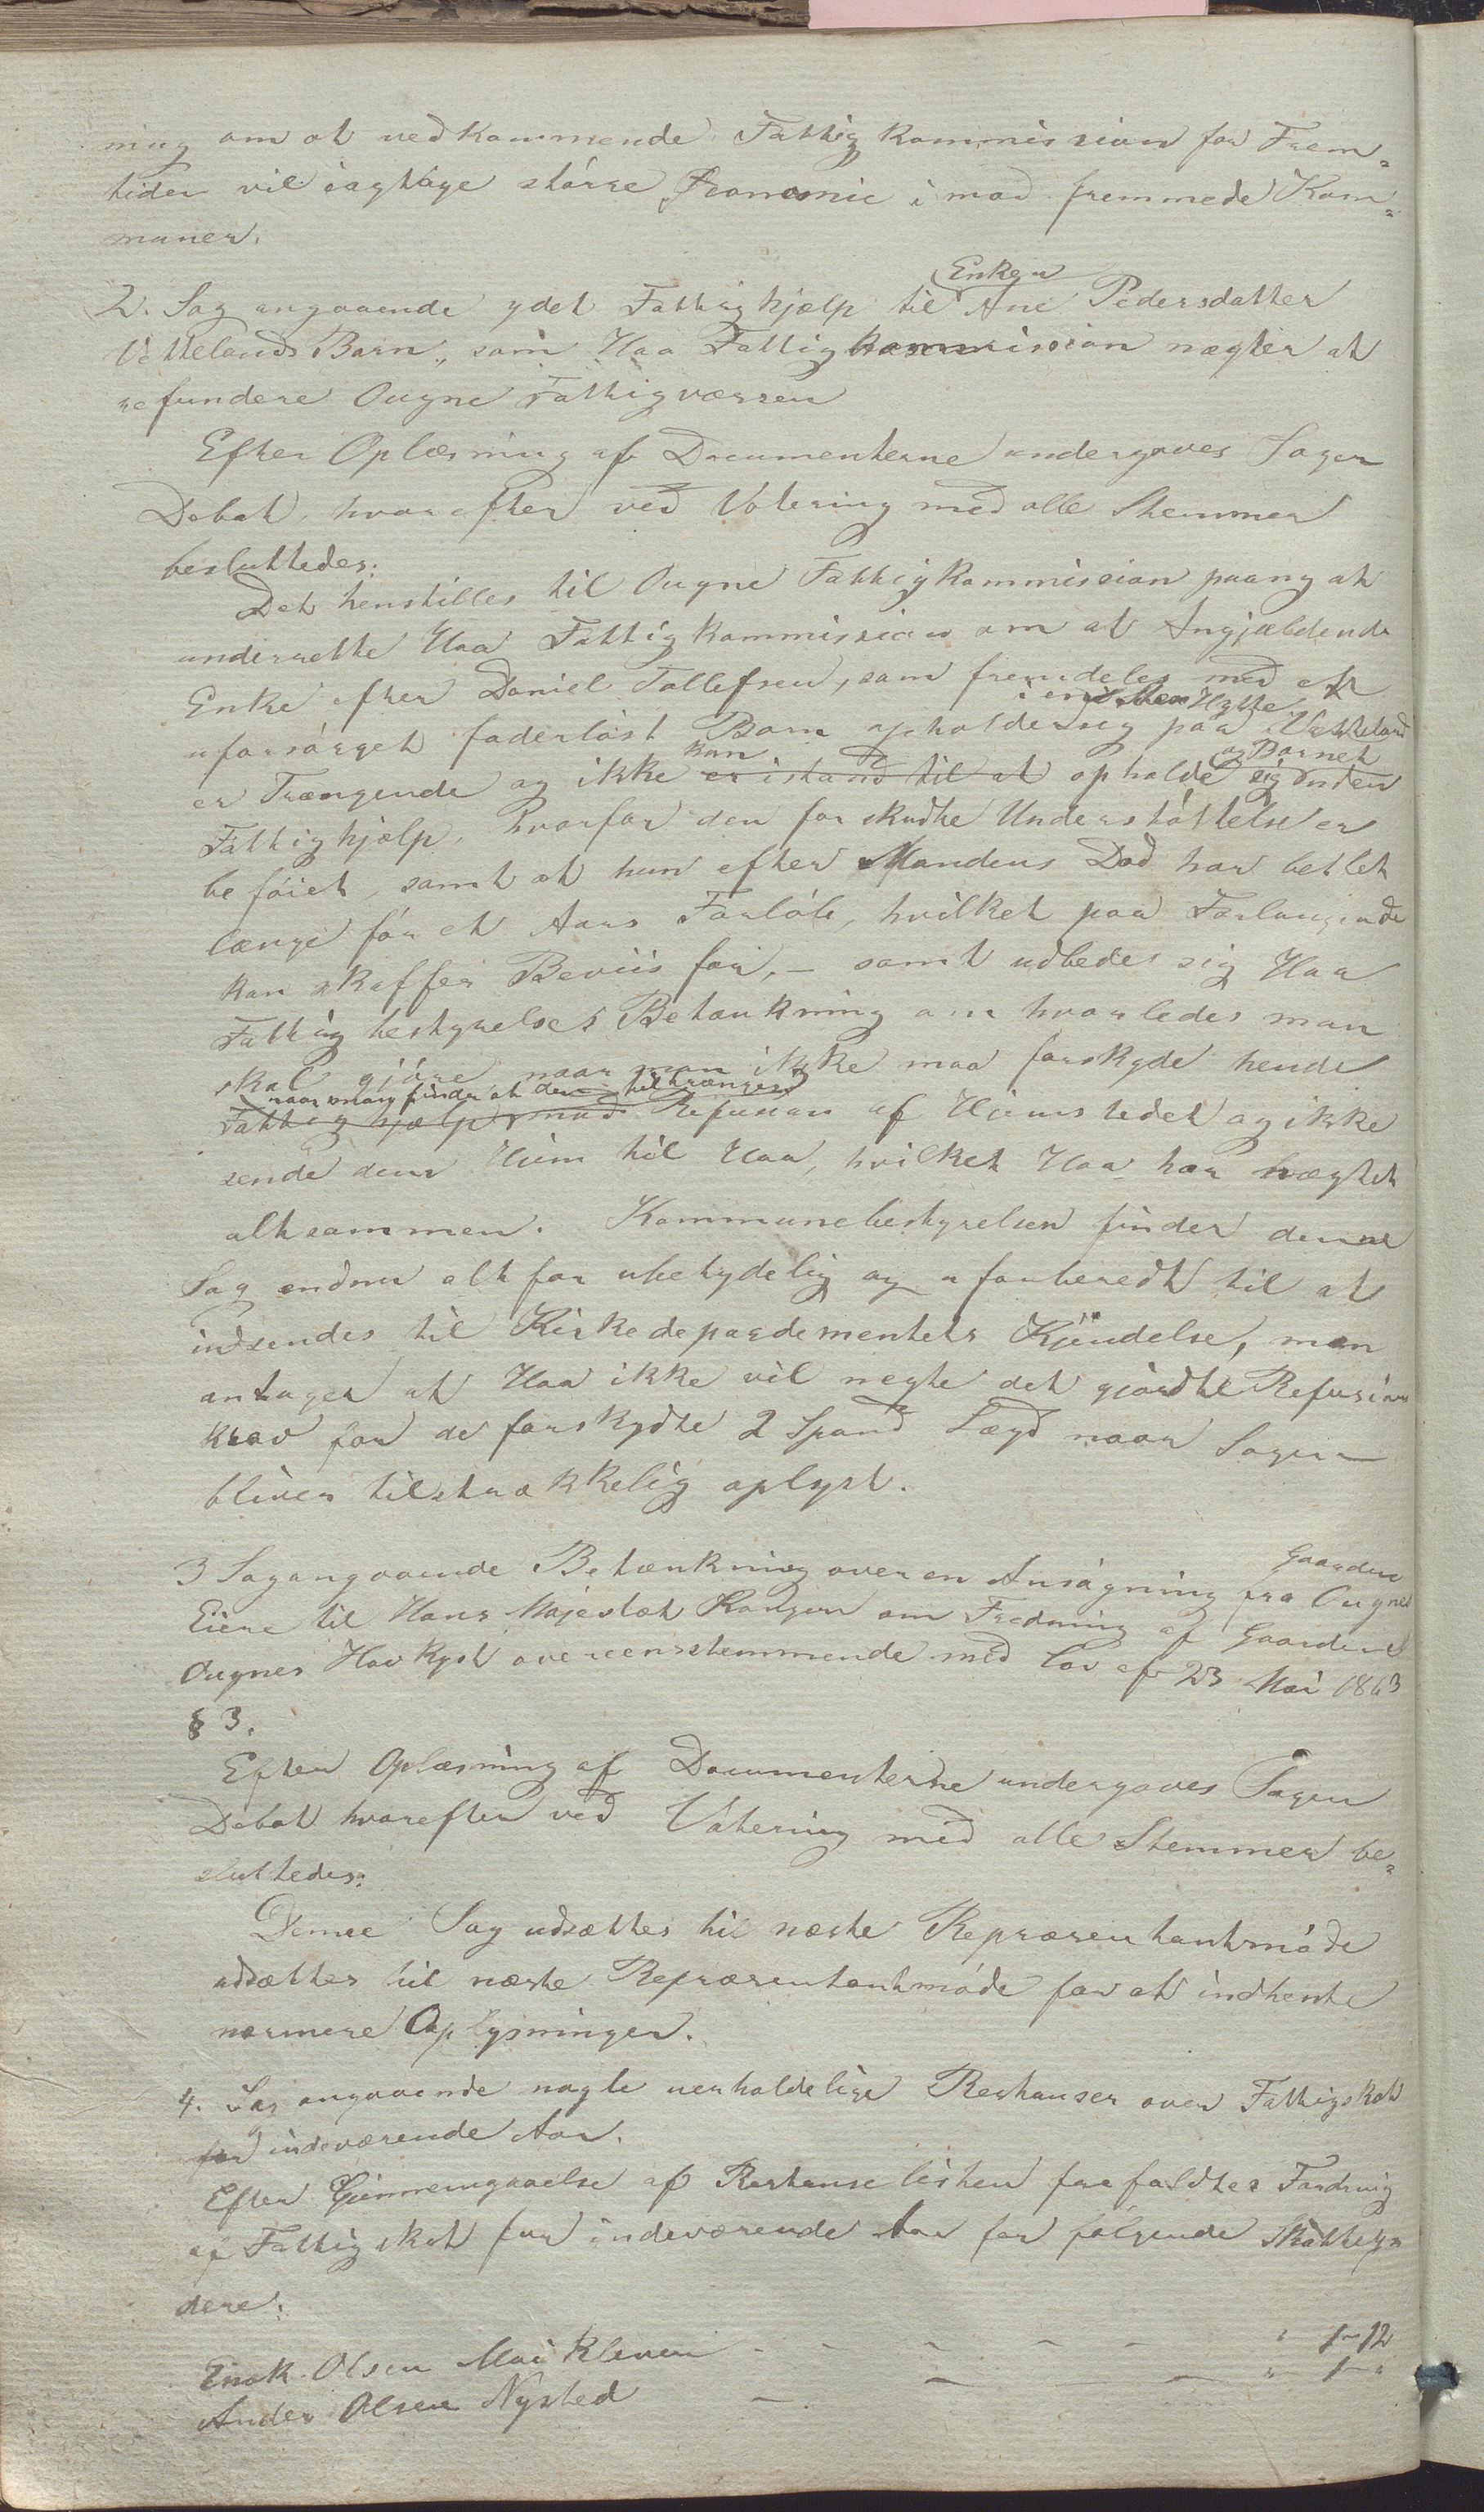 ning om at vedkommende Fattigkommission for Frem-
tiden vil iagtage større Økonomie imod fremmede Kom-
muner.
2. Sag angaaende ydet Fattighjælp til Enken Ane Pedersdatter
Vettelands Barn, som Haa Fattigkommission nægter at
refundere Ougne Fattigvæsen
Efter Oplæsning af Documenterne undergaves Sagen
Debat, hvorefter ved Votering med alle Stemmer
besluttedes:
Det henstilles til Ougne Fattigkommission paany at
underrette Haa Fattigkommission om at Angjældende
Enke efter Daniel Tollefsen, som fremdeles med et
i en liden Hytte
uforsørget faderløst Barn opholder sig paa Vetteland
kan og Barnet
er Trængende og ikke er istand til at opholde sig uden
Fattighjælp, hvorfor den forskudte Understøttelse er
beføiet, samt at hun efter Mandens Død har betlet
længe før et Aars Forløb, hvilket paa Forlangende
kan skaffes Beviis for, – samt udbedes sig Haa
Fattigbestyrelses Betænkning om hvorledes man
skal gjøre naar man ikke maa forskyde hende
naar man finder at den tiltrænges
Fattighjælp mod Refusion af Hjemstedet og ikke
sende dem Hiem til Haa, hvilket Haa har nægtet
altsammen. Kommunebestyrelsen finder denne
Sag endnu alt for ubetydelig og uforberedt til at
indsendes til Kirkedepardementets Kjendelse, man
antager at Haa ikke vil negte det gjordte Refusions
krav for de forskydte 2 Spand Bæyd naar Sagen
bliver tilstrækkelig oplyst.
3 Sag angaaende Betænkning over en Ansøgning fra Gaarden Ougnes
Eiere til Hans Majestæt Kongen om Fredning af Gaarden
Ougnes Havkyst overeensstemmende med Lov af 23 Mai 1863
§ 3.
Efter Oplæsning af Documenterne undergaves Sagen
Debat hvorefter ved Votering med alle Stemmer be-
sluttedes:
Denne Sag udsættes til næste Repræsentantmøde
udsættes til næste Repræsentantmøde for at indhente
nærmere Oplysninger.
4. Sag angaaende nogle uerholdelige Restanser over Fattigskat
for indeværende Aar.
Efter Gjennemgaaelse af Restanselisten frafaldtes Fordring
af Fattigskat for indeværende Aar for følgende Skatteyn
dere:
Enok Olsen Maikleven - - - - - " 1-12
Ander Olsen Nysted - - - " 1-"